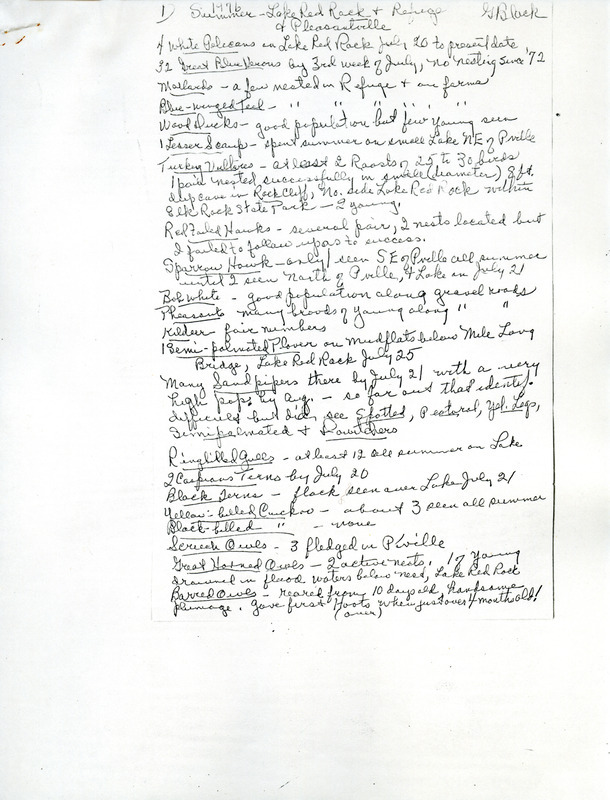 1) Summer - 1976 Lake Red Rock & Refuge G Black
& Pleasantville
4 White Pelicans in Lake Red Rock July 20 to present date
32 Great Blue Herons by 3rd week of July, no nesting since '72
Mallards - a few nested in Refuge & on farms
Blue-winged Teal - " " " " " "
Wood Ducks - good population but few young seen
1 Lesser Scaup - spent summer on small Lake NE of Pville
Turkey Vultures - at least 2 Roosts of 25 to 30 birds
1 pair nested successfully in small (diameter) 8 ft.
deep cave in Rock cliff, No. side Lake Red Rock within
Elk Rock State Park - 2 young.
Red tailed Hawks - several pair, 2 nests located but
I failed to follow up as to success.
Sparrow Hawk - only 1 seen SE of Pville all summer
until 2 seen North of Pville, & Lake in July 21
Bob White - good population along gravel roads
Pheasants many broods of young along " "
Killdeer fair numbers
1 Semi-palmated Plover on mudflats below Mile Long
Bridge, Lake Red Rock July 25
Many Sandpipers there by July 21 with a very
high pop. by Aug. - so far out that identif.
difficult but did see Spotted, Pectoral, Yel. Legs,
Semipalmated & Dowitchers
Ringbilled Gulls - at least 12 all summer on Lake
2 Caspians Terns by July 20
Black Terns - flock seen over Lake July 21
Yellow-billed Cuckoo - about 3 seen all summer
Black-billed " - none
Screech Owls - 3 fledged in P'ville
Great Horned Owls - 2 active nests. 1 young
drowned in flood waters below nest, Lake Red Rock
Barred Owls - reared from 10 days old, handsome
plumage. Gave first Hoots when just over 4 months old!
(over)